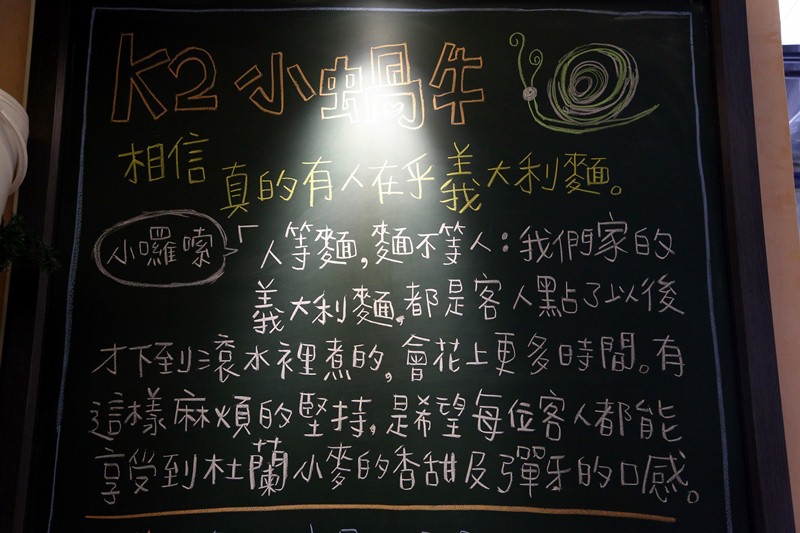 K2小蝸牛
相信 真的有人在乎義大利麵。
小囉嗦 「人等麵,麵不等人:我們家的
義大利麵,都是客人點了以後
才下到滾水裡煮的,會花上更多時間。有
這樣麻煩的堅持,是希望每位客人都能
享受到杜蘭小麥的香甜及彈牙的口感。